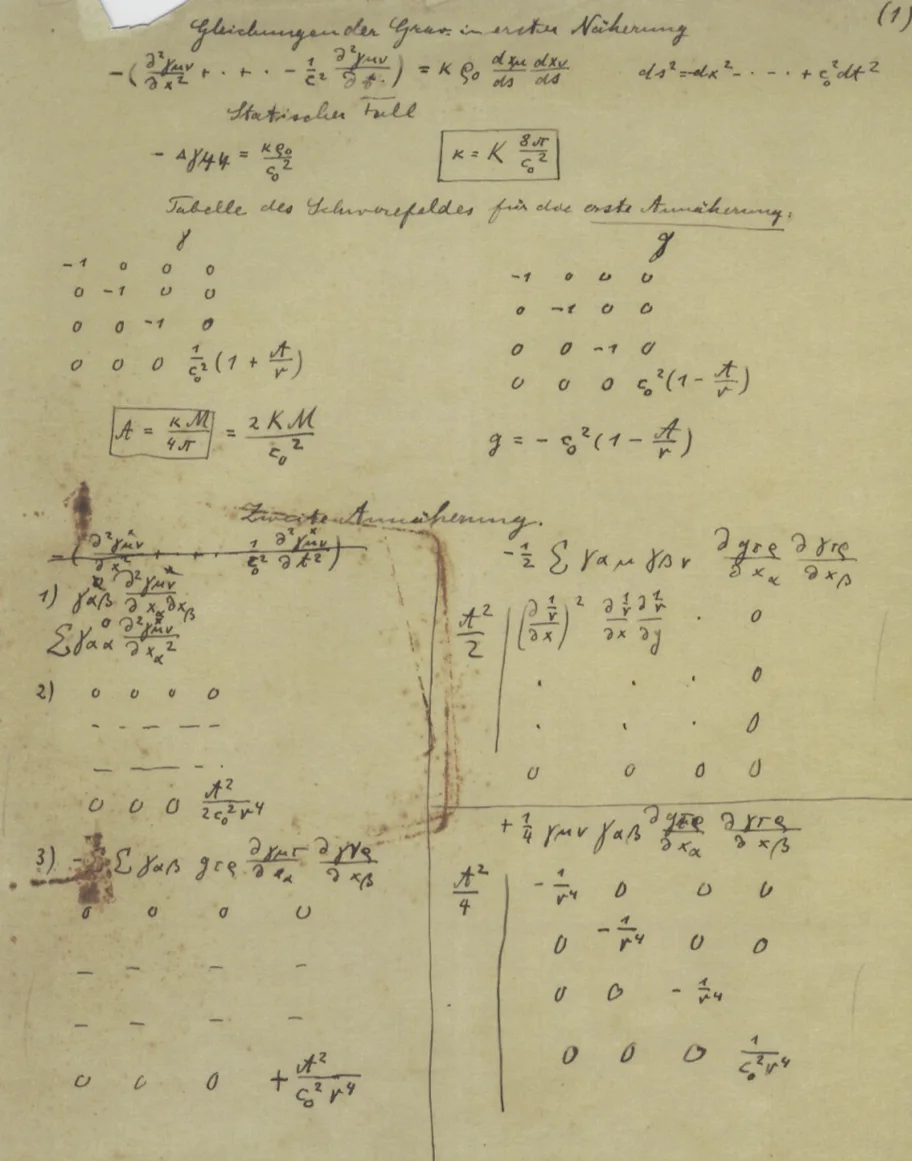 (1)
Gleichungen der Grav. in erster Näherung
−(∂²γμν/∂x² + · + · − 1/c² ∂²γμν/∂t²) = κ ρ₀ dxμ/ds dxν/ds    ds² = −dx² − · − · + c₀²dt²
Statischer Fall
− Δγ44 = κρ₀/c₀²    κ = K 8π/c₀²
Tabelle des Schwerefeldes für die erste Annäherung.
γ
−1 0 0 0
0 −1 0 0
0 0 −1 0
0 0 0 1/c₀² (1 + A/r)
g
−1 0 0 0
0 −1 0 0
0 0 −1 0
0 0 0 c₀²(1 − A/r)
A = κM/4π = 2KM/c₀²
g = − c₀²(1 − A/r)
Zweite Annäherung.
−(∂²γμν×/∂x² + · + · 1/c₀² ∂²γμν×/∂t²)
1) γαβ ∂²γμν×/∂xα∂xβ
Σγαα⁰ ∂²γμν×/∂xα²
2) 0 0 0 0
– – – – –
– – – – ·
0 0 0 A²/2c₀²r⁴
3) − Σ γαβ gτρ ∂γμτ/∂xα ∂γνρ/∂xβ
0 0 0 0
– – – –
– – – –
0 0 0 + A²/c₀²r⁴
−1/2 Σ γαμ γβν ∂gτρ/∂xα ∂γτρ/∂xβ
A²/2 | (∂1/r/∂x)² ∂1/r/∂x ∂1/r/∂y · 0
· · · 0
· · · 0
0 0 0 0
+ 1/4 γμν γαβ ∂gτρ/∂xα ∂γτρ/∂xβ
A²/4 | −1/r⁴ 0 0 0
0 −1/r⁴ 0 0
0 0 −1/r⁴
0 0 0 1/c₀²r⁴